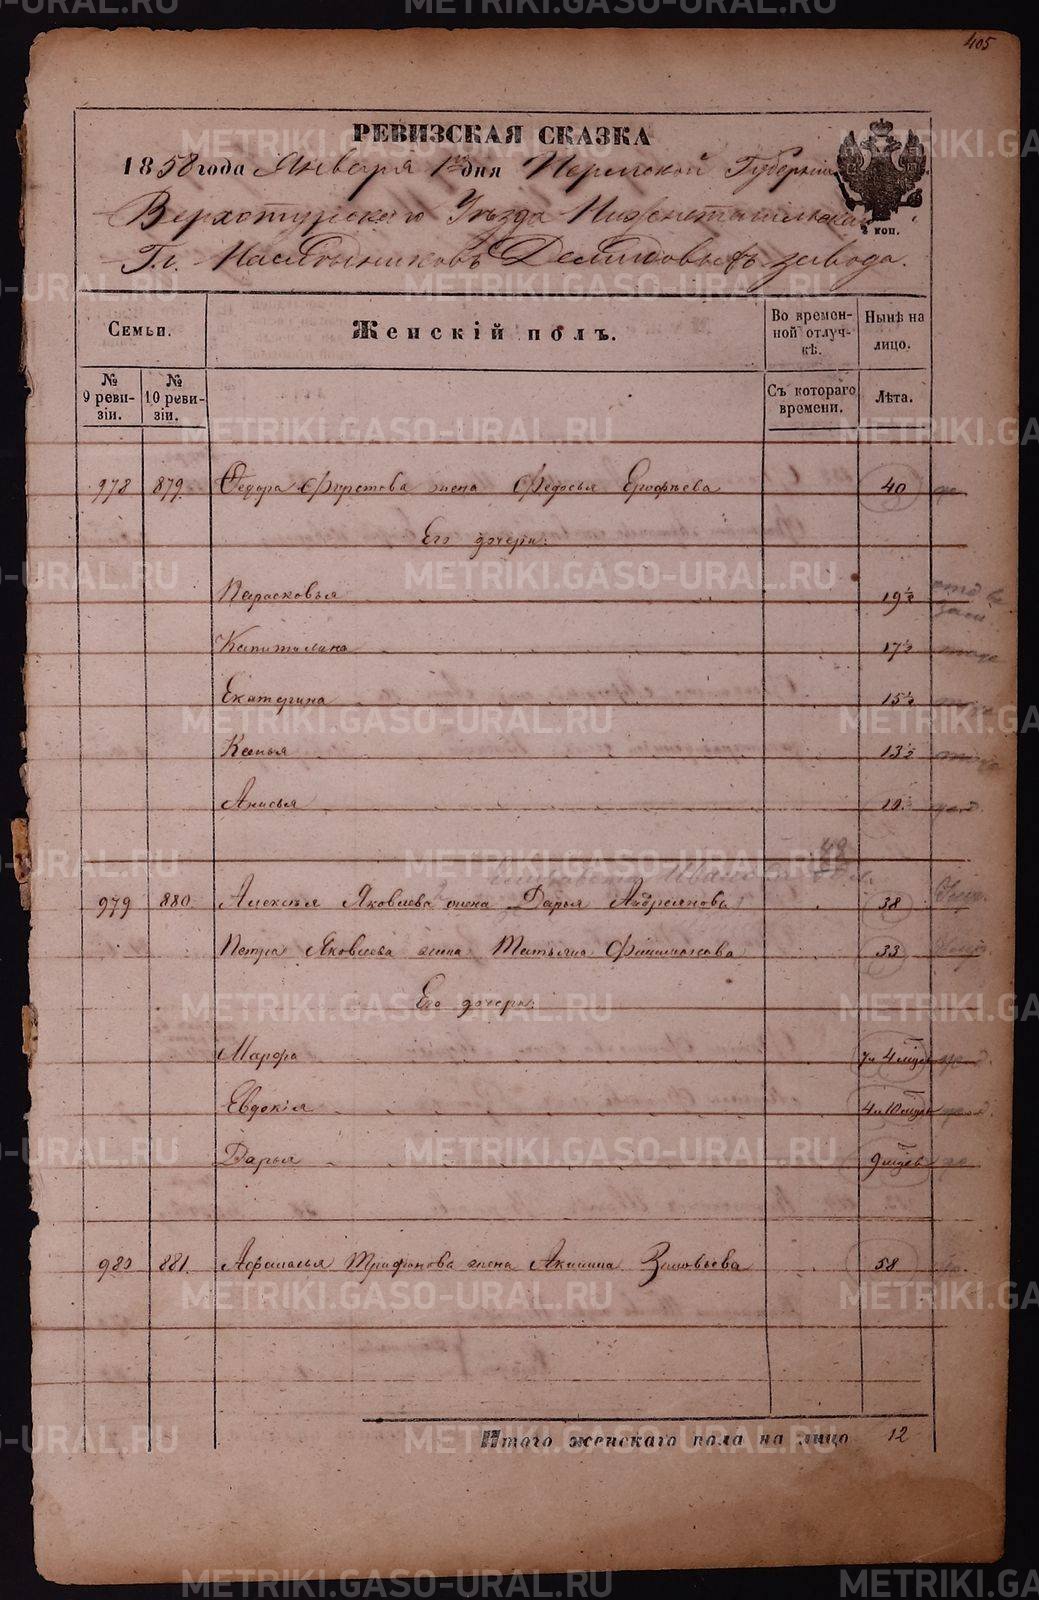 405
РЕВИЗСКАЯ СКАЗКА
1858 года Января 1го дня Пермской Губерніи
Верхотурскаго Уѣзда Нижнетагильскаго
Гг. Наслѣдниковъ Демидовыхъ завода.
2 коп.
Семьи.
Женскій полъ.
Во времен-
ной отлуч-
кѣ.
Нынѣ на
лицо.
№
9 реви-
зіи.
№
10 реви-
зіи.
Съ котораго
времени.
Лѣта.
978 879. Ѳедора жена Федосья Ерофѣева 40
Его дочери:
Парасковья 19½
Капитолина 17½
Екатерина 15½
Ксенья 13½
Анисья
49
979 880. Алексѣя Яковлева жена Дарья Андреянова 38
Петра Яковлева жена Татьяна 33
Его дочери:
Марфа 7 и 4 мцев
Евдокія 4 и 10 мцев
Дарья 9 мцев
980 881. Афанасья Трифонова жена Акилина Зиновьева 58
Итого женскаго пола на лицо 12
METRIKI.GASO-URAL.RU